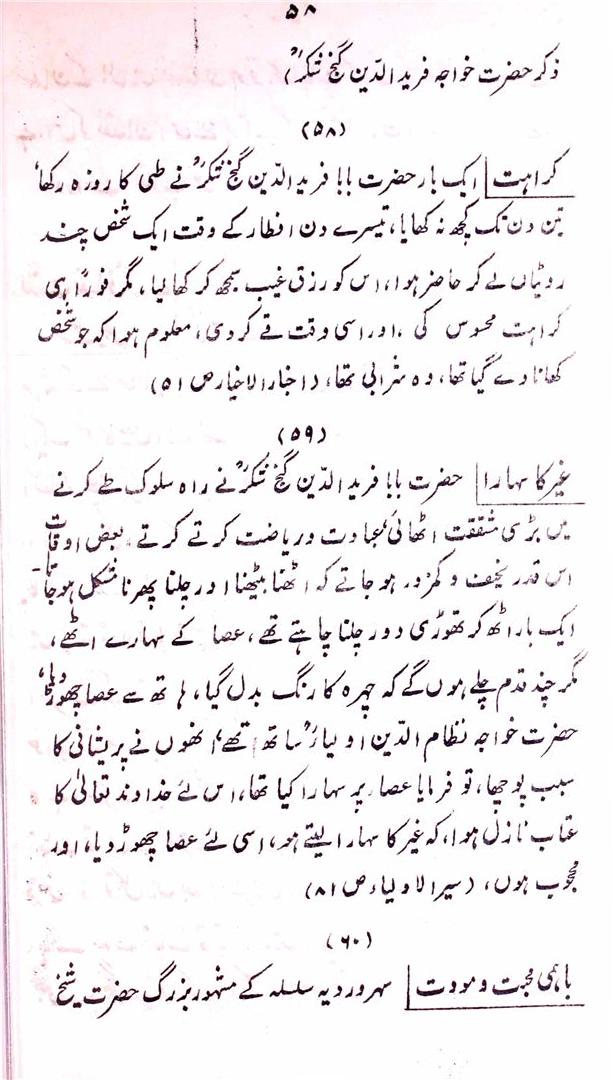 ۵۸
ذکر حضرت خواجہ فرید الدین گنج شکرؒ)
(۵۸)
کراہت ایک بار حضرت بابا فرید الدین گنج شکرؒ نے طی کا روزہ رکھا،
تین دن تک کچھ نہ کھایا، تیسرے دن افطار کے وقت ایک شخص چند
روٹیاں لے کر حاضر ہوا، اس کو رزق غیب سمجھ کر کھا لیا، مگر فوراً ہی
کراہت محسوس کی، اور اسی وقت قے کردی، معلوم ہوا کہ جو شخص
کھانا دے گیا تھا، وہ شرابی تھا، (اخبار الاخیار ص ۵۱)
(۵۹)
غیر کا سہارا حضرت بابا فرید الدین گنج شکرؒ نے راہ سلوک طے کرنے
میں بڑی مشقت اٹھائی، عبادت و ریاضت کرتے کرتے بعض اوقات
اس قدر نحیف و کمزور ہو جاتے کہ اٹھنا بیٹھنا اور چلنا پھرنا مشکل ہوجاتا۔
ایک بار اٹھ کر تھوڑی دور چلنا چاہتے تھے، عصا کے سہارے اٹھے،
مگر چند قدم چلے ہوں گے کہ چہرہ کا رنگ بدل گیا، ہاتھ سے عصا چھوڑ دیا،
حضرت خواجہ نظام الدین اولیاءؒ ساتھ تھے، انھوں نے پریشانی کا
سبب پوچھا، تو فرمایا عصا پر سہارا کیا تھا، اس لئے خداوند تعالیٰ کا
عتاب نازل ہوا، کہ غیر کا سہارا لیتے ہو، اسی لئے عصا چھوڑ دیا، اور
محجوب ہوں، (سیر الاولیاء ص ۸۱)
(۶۰)
باہمی محبت و مودت سہروردیہ سلسلہ کے مشہور بزرگ حضرت شیخ